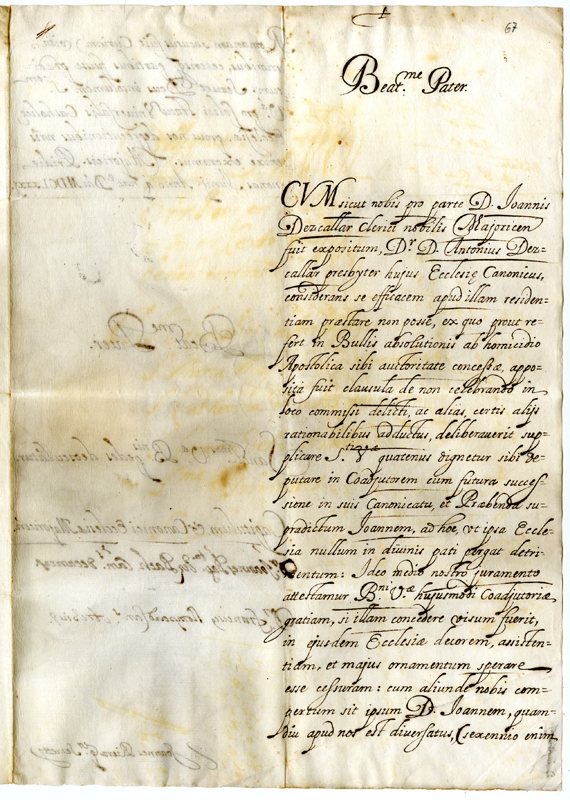 67
Beat.me Pater.
CVM sicut nobis pro parte D. Joannis
Dezcallar Clerici nobilis Majoricen
fuit expositum, Dr. D. Antonius Dez=
callar presbyter hujus Ecclesię Canonicus,
considerans se efficacem apud illam residen=
tiam præstare non posse, ex quo prout re=
fert in Bullis absolutionis ab homicidio
Apostolica sibi auctoritate concessæ, appo=
sita fuit clausula de non celebrando in
loco commissi delicti, ac alias, certis aliis
rationabilibus adductus, deliberaverit sup=
plicare S. V. quatenus dignetur sibi de=
putare in Coadjutorem cum futura succes=
sione in suis Canonicatu, et Præbenda su=
pradictum Joannem, ad hoc, vt ipsa Eccle=
sia nullum in divinis pati pergat detri=
mentum: Ideo medio nostro juramento
attestamur B.ni V.æ hujusmodi Coadjutoriæ
gratiam, si illam concedere visum fuerit,
in ejusdem Ecclesiæ decorem, assisten=
tiam, et majus ornamentum sperare
esse cessuram: cum aliunde nobis com=
pertum sit ipsum D. Joannem, quam=
diu apud nos est diversatus, (sexennio enim